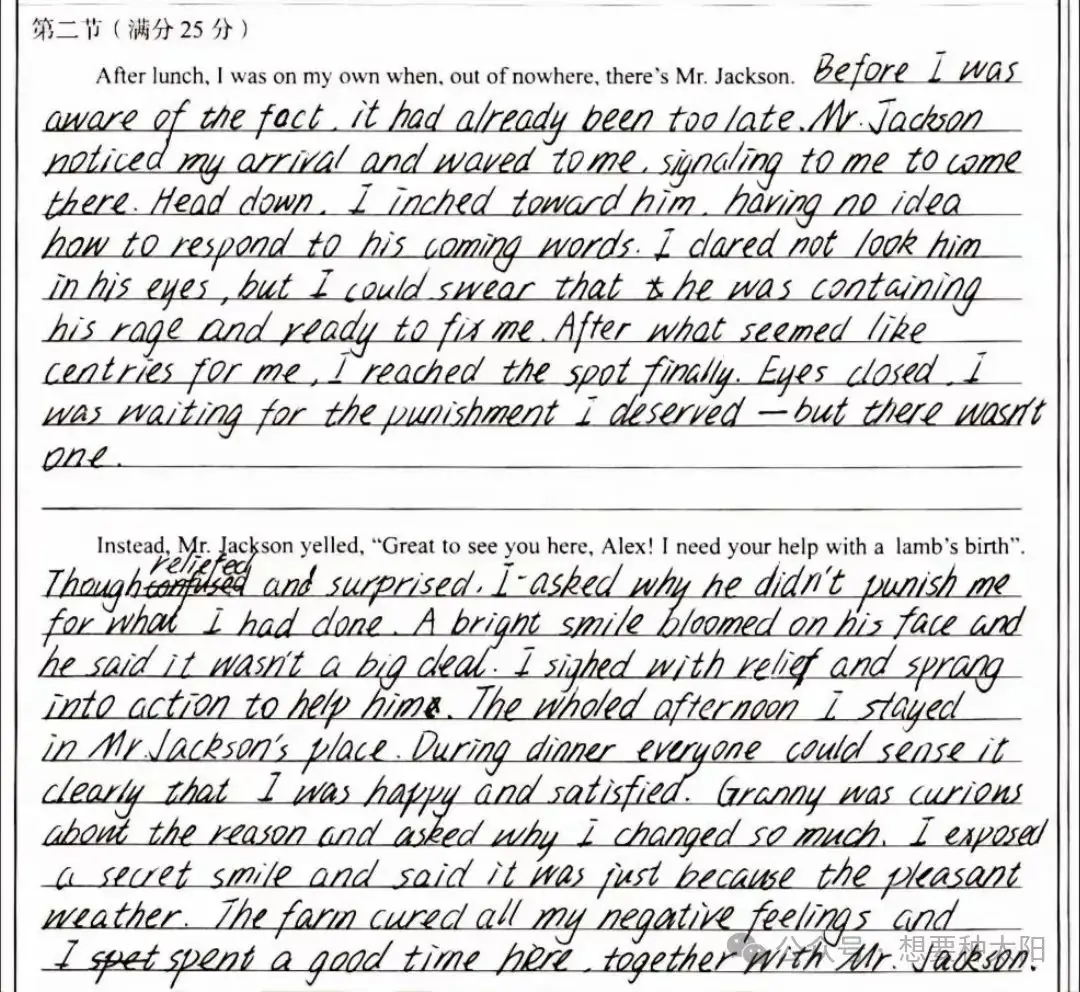 第二节（满分25分）
After lunch, I was on my own when, out of nowhere, there's Mr. Jackson. Before I was
aware of the fact, it had already been too late. Mr. Jackson
noticed my arrival and waved to me, signaling to me to come
there. Head down, I inched toward him, having no idea
how to respond to his coming words. I dared not look him
in his eyes, but I could swear that he was containing
his rage and ready to fix me. After what seemed like
centries for me, I reached the spot finally. Eyes closed, I
was waiting for the punishment I deserved — but there wasn't
one.
Instead, Mr. Jackson yelled, “Great to see you here, Alex! I need your help with a lamb's birth”.
Though reliefed and surprised, I asked why he didn't punish me
for what I had done. A bright smile bloomed on his face and
he said it wasn't a big deal. I sighed with relief and sprang
into action to help him. The wholed afternoon I stayed
in Mr. Jackson's place. During dinner everyone could sense it
clearly that I was happy and satisfied. Granny was curions
about the reason and asked why I changed so much. I exposed
a secret smile and said it was just because the pleasant
weather. The farm cured all my negative feelings and
I spent a good time here, together with Mr. Jackson.
公众号 · 想要种太阳